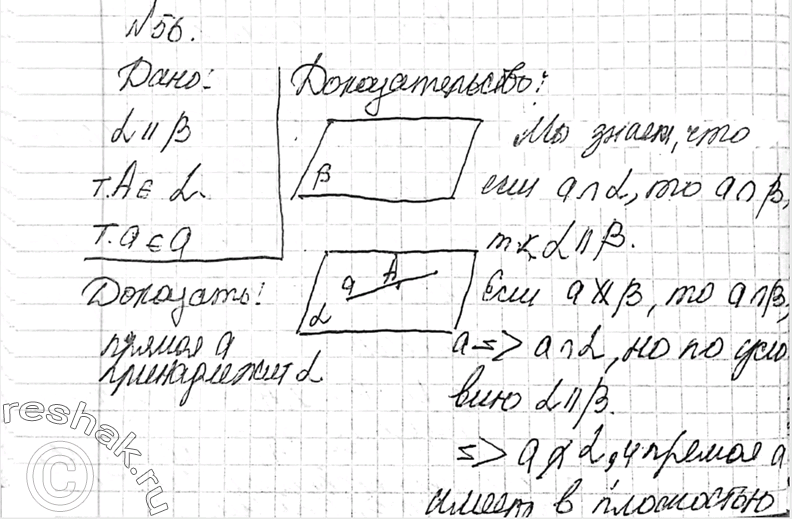 №56.
Дано:
α ∥ β
т.A ∈ α.
т.a ∈ a
Доказать:
прямая a
принадлежит α
Доказательство:
β
a A
α
Мы знаем, что
если a∩α, то a∩β,
т.к. α∥β.
Если a∦β, то a∩β,
a => a∩α, но по усло
вию α∥β.
=> a α, и прямая a
имеет в плоскостью
reshak.ru
©